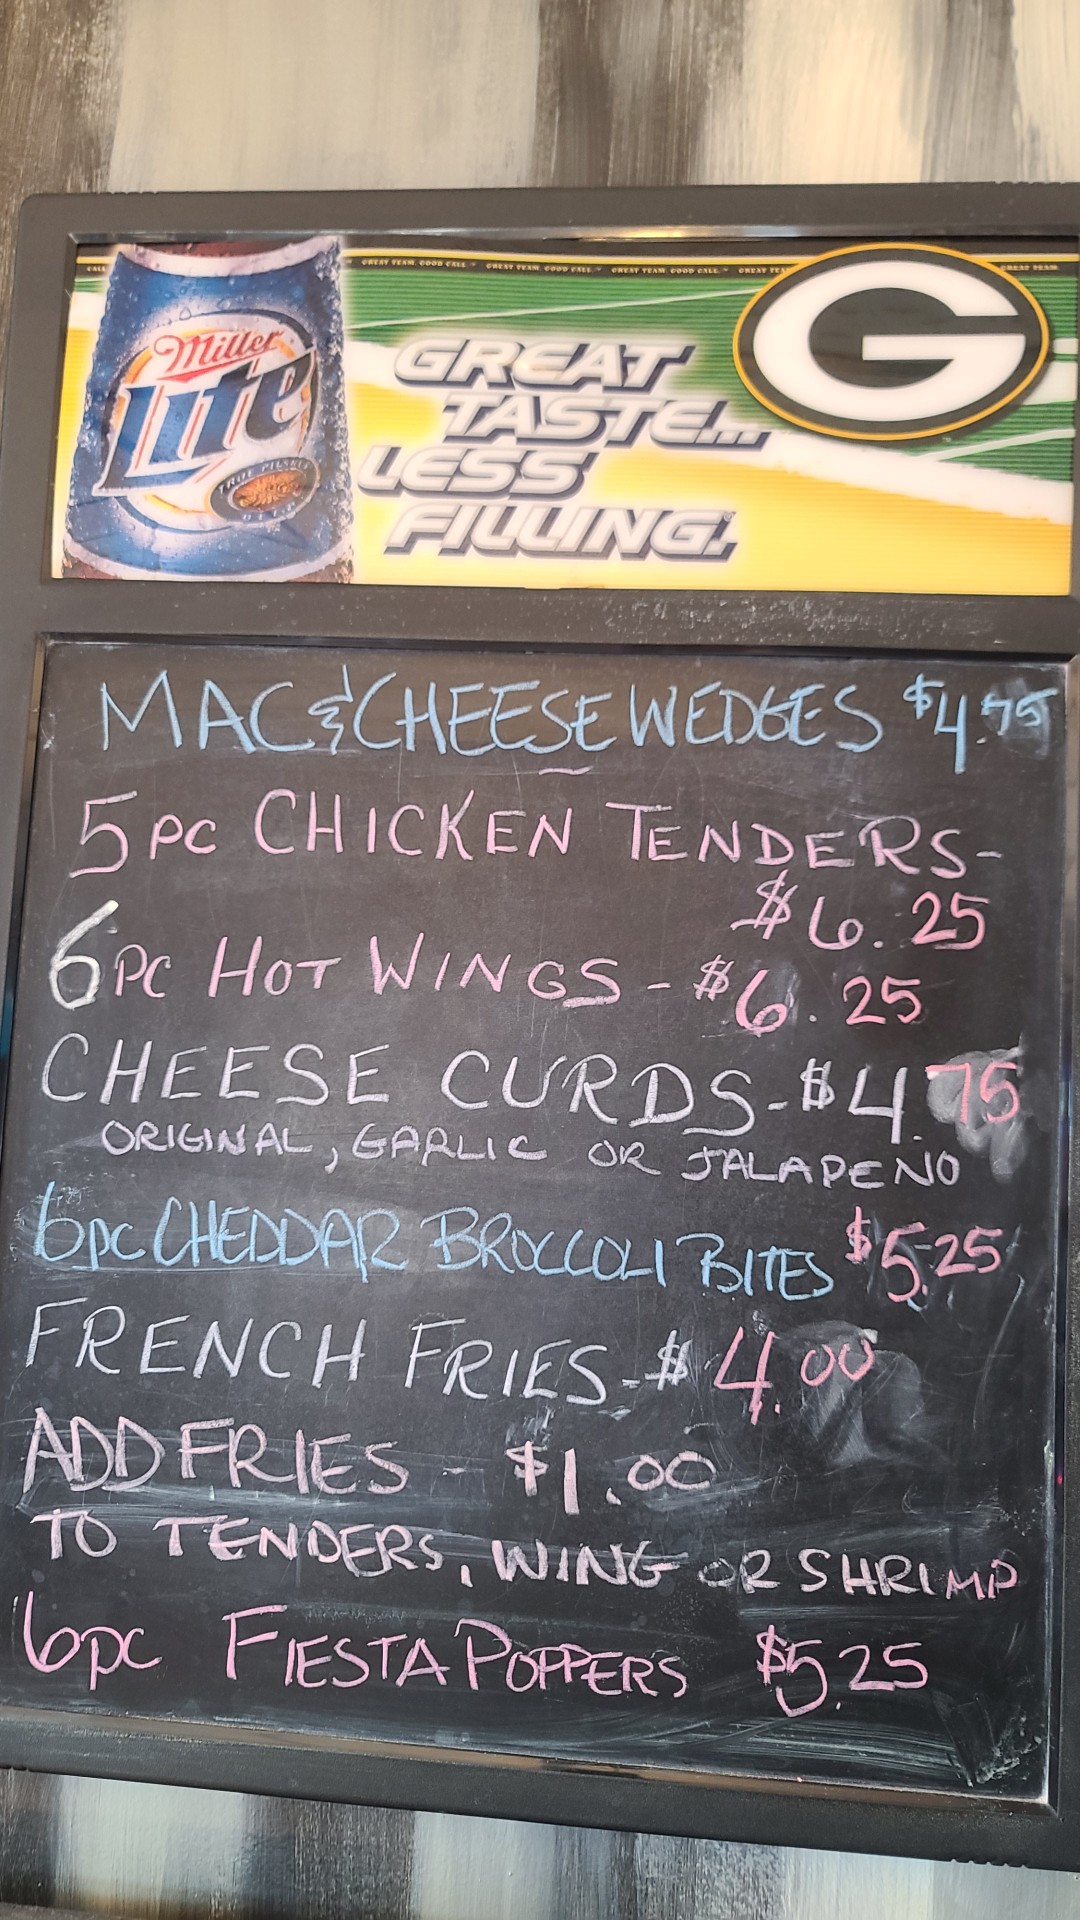 CALL GREAT TEAM. GOOD CALL. GREAT TEAM. GOOD CALL. GREAT TEAM. GOOD CALL. GREAT TEA GREAT TEAM.
Miller
Lite
TRUE PILSNER
BEER
GREAT
TASTE...
LESS
FILLING.®
G
MAC & CHEESE WEDGES $4.75
5 PC CHICKEN TENDERS-
$6.25
6 PC HOT WINGS - $6.25
CHEESE CURDS - $4.75
ORIGINAL, GARLIC OR JALAPENO
6pc CHEDDAR BROCCOLI BITES $5.25
FRENCH FRIES - $4.00
ADD FRIES - $1.00
TO TENDERS, WING OR SHRIMP
6pc FIESTA POPPERS $5.25